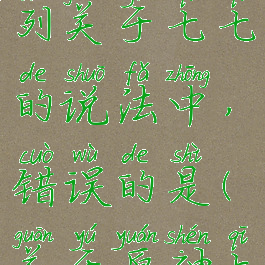 列关于七七
de shuō fǎ zhōng
的说法中，
cuò wù de shì
错误的是(
guān yú yuán shén qī
关于原神七